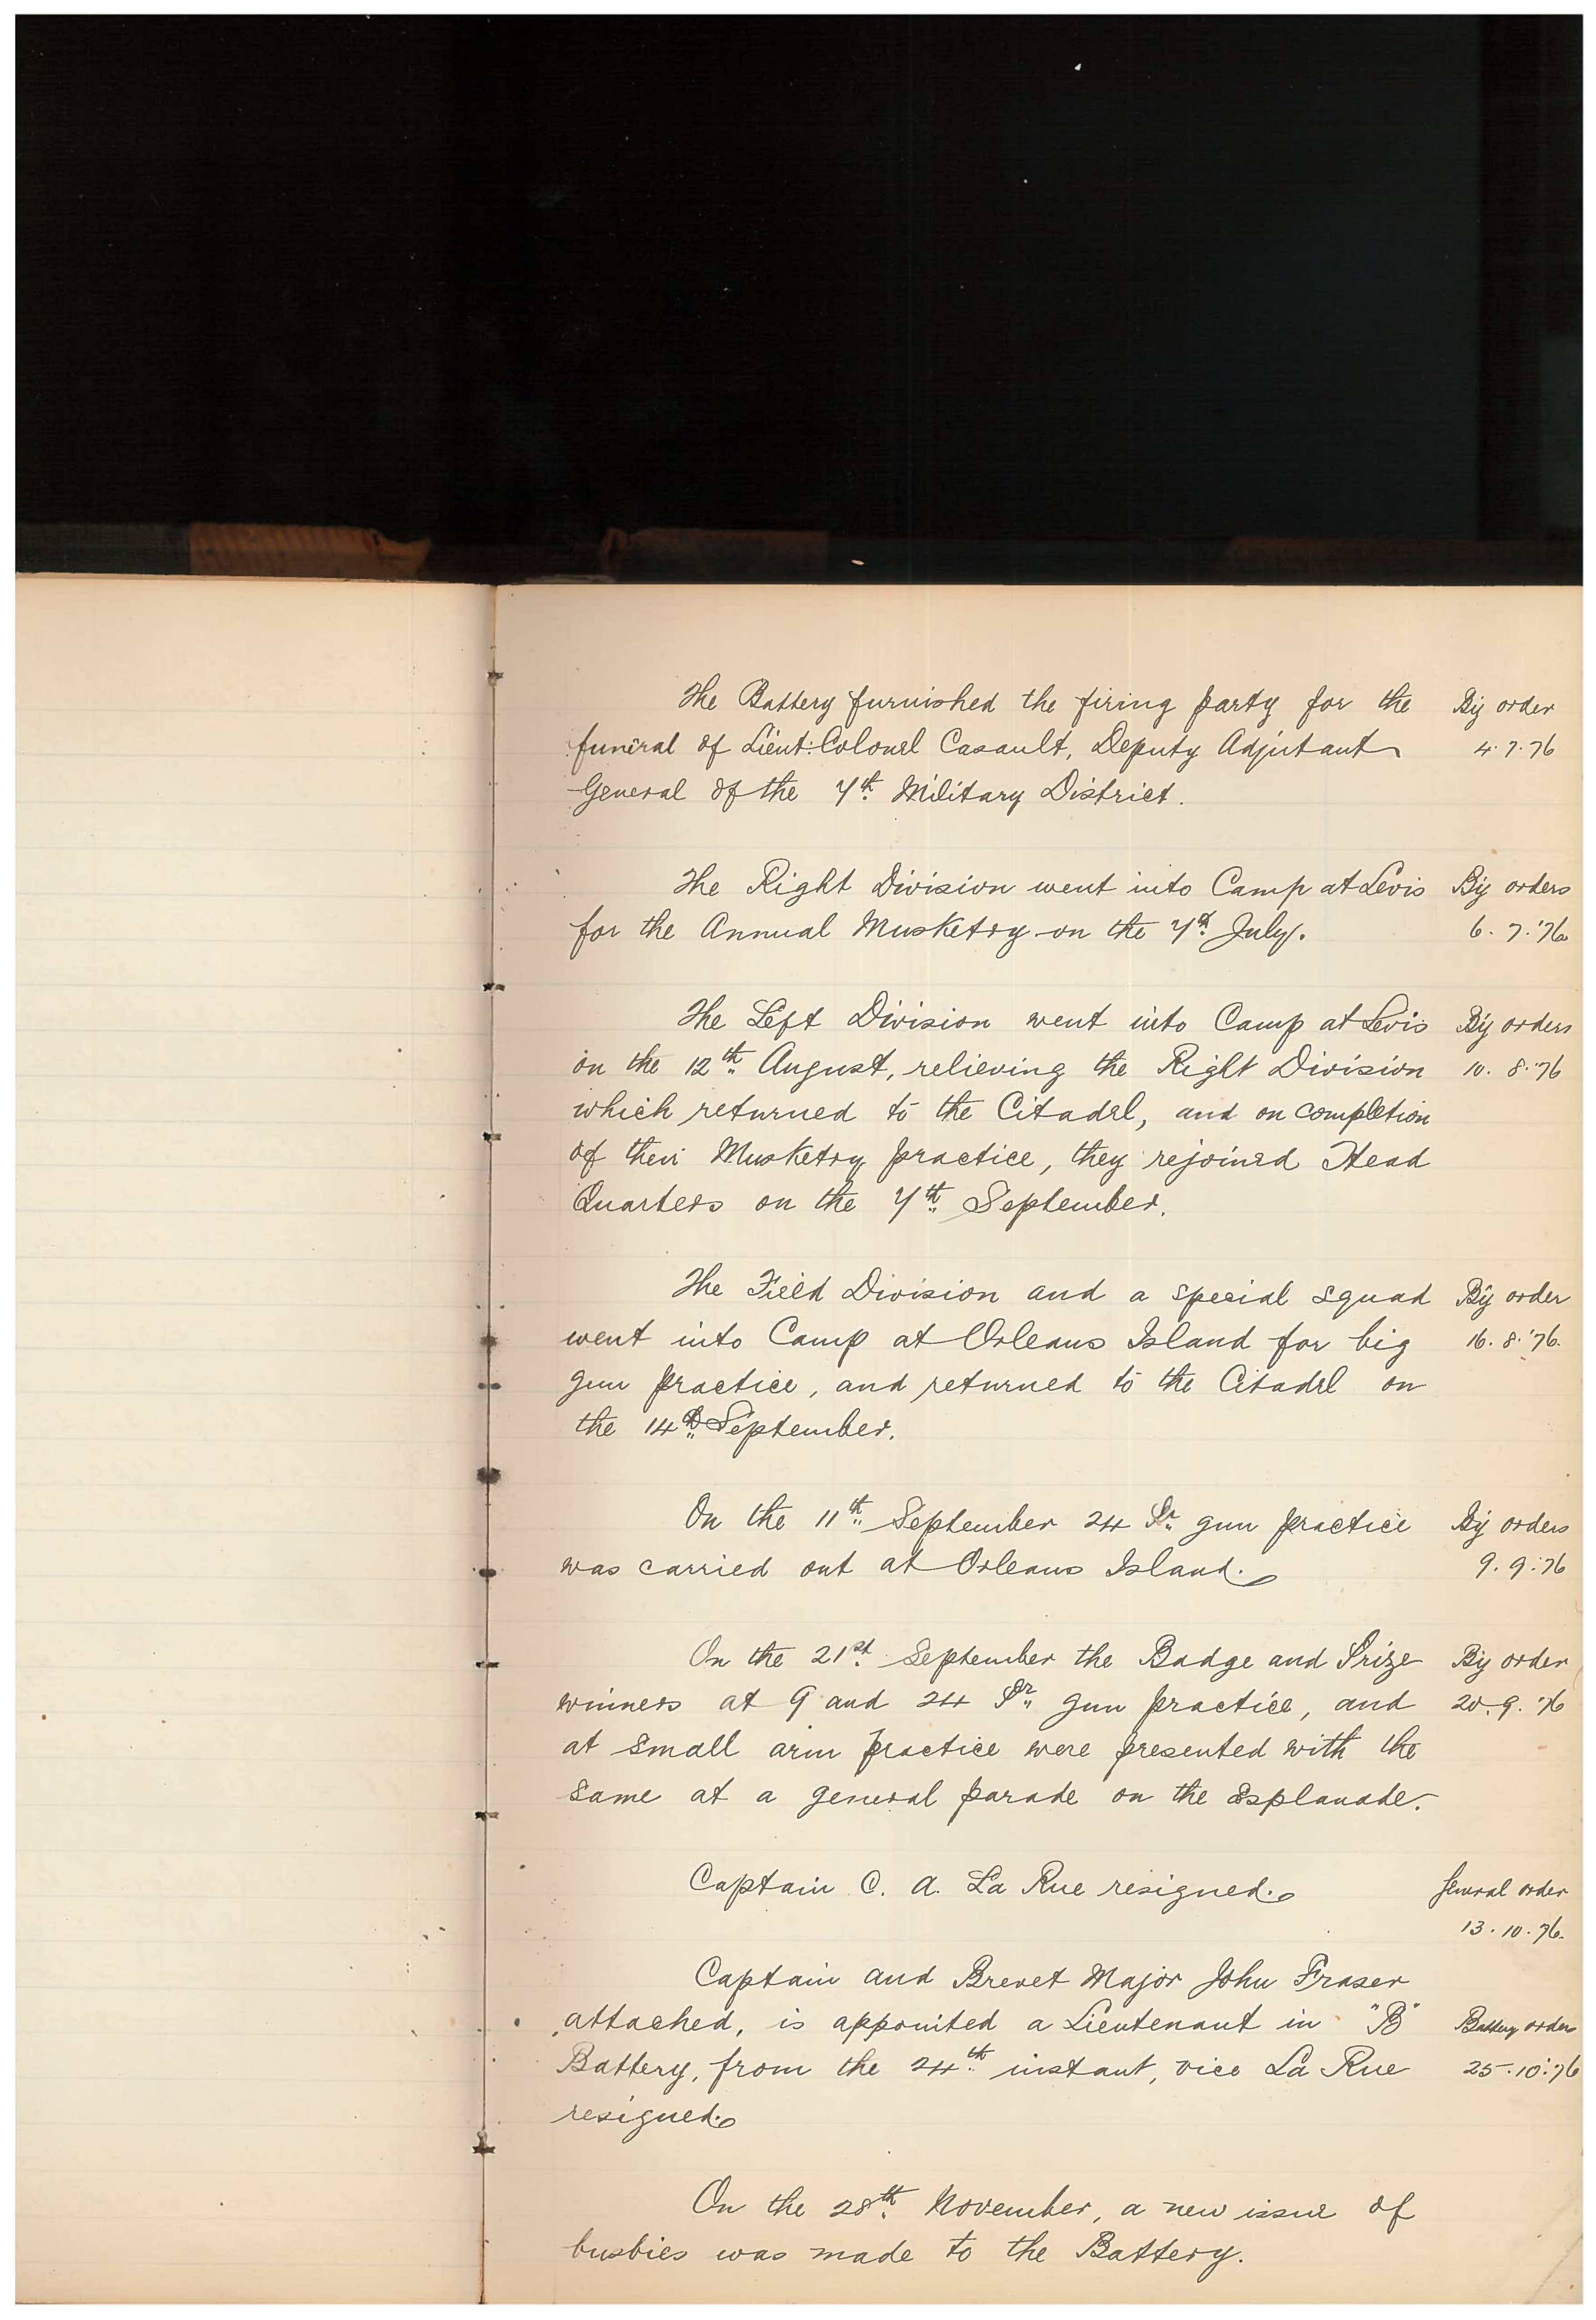 The Battery furnished the firing party for the By order
funeral of Lieut:Colonel Casault, Deputy Adjutant 4.7.76
General of the 7th Military District.
The Right Division went into Camp at Levis By orders
for the Annual Musketry on the 7th July. 6.7.'76
The Left Division went into Camp at Levis By orders
on the 12th August, relieving the Right Division 10.8.'76
which returned to the Citadel, and on completion
of their Musketry practice, they rejoined Head
Quarters on the 7th September.
The Field Division and a special squad By order
went into Camp at Orleans Island for big 16.8.'76.
gun practice, and returned to the Citadel on
the 14th September.
On the 11th September 24 Pr gun practice By orders
was carried out at Orleans Island. 9.9.'76
On the 21st September the Badge and Prize By order
winners at 9 and 24 Pr gun practice, and 20.9.'76
at small arm practice were presented with the
same at a general parade on the Esplanade.
Captain C. A. La Rue resigned. General order
13.10.76.
Captain and Brevet Major John Fraser
attached, is appointed a Lieutenant in "B" Battery order
Battery, from the 24th instant, vice La Rue 25.10.'76
resigned.
On the 28th November, a new issue of
busbies was made to the Battery.